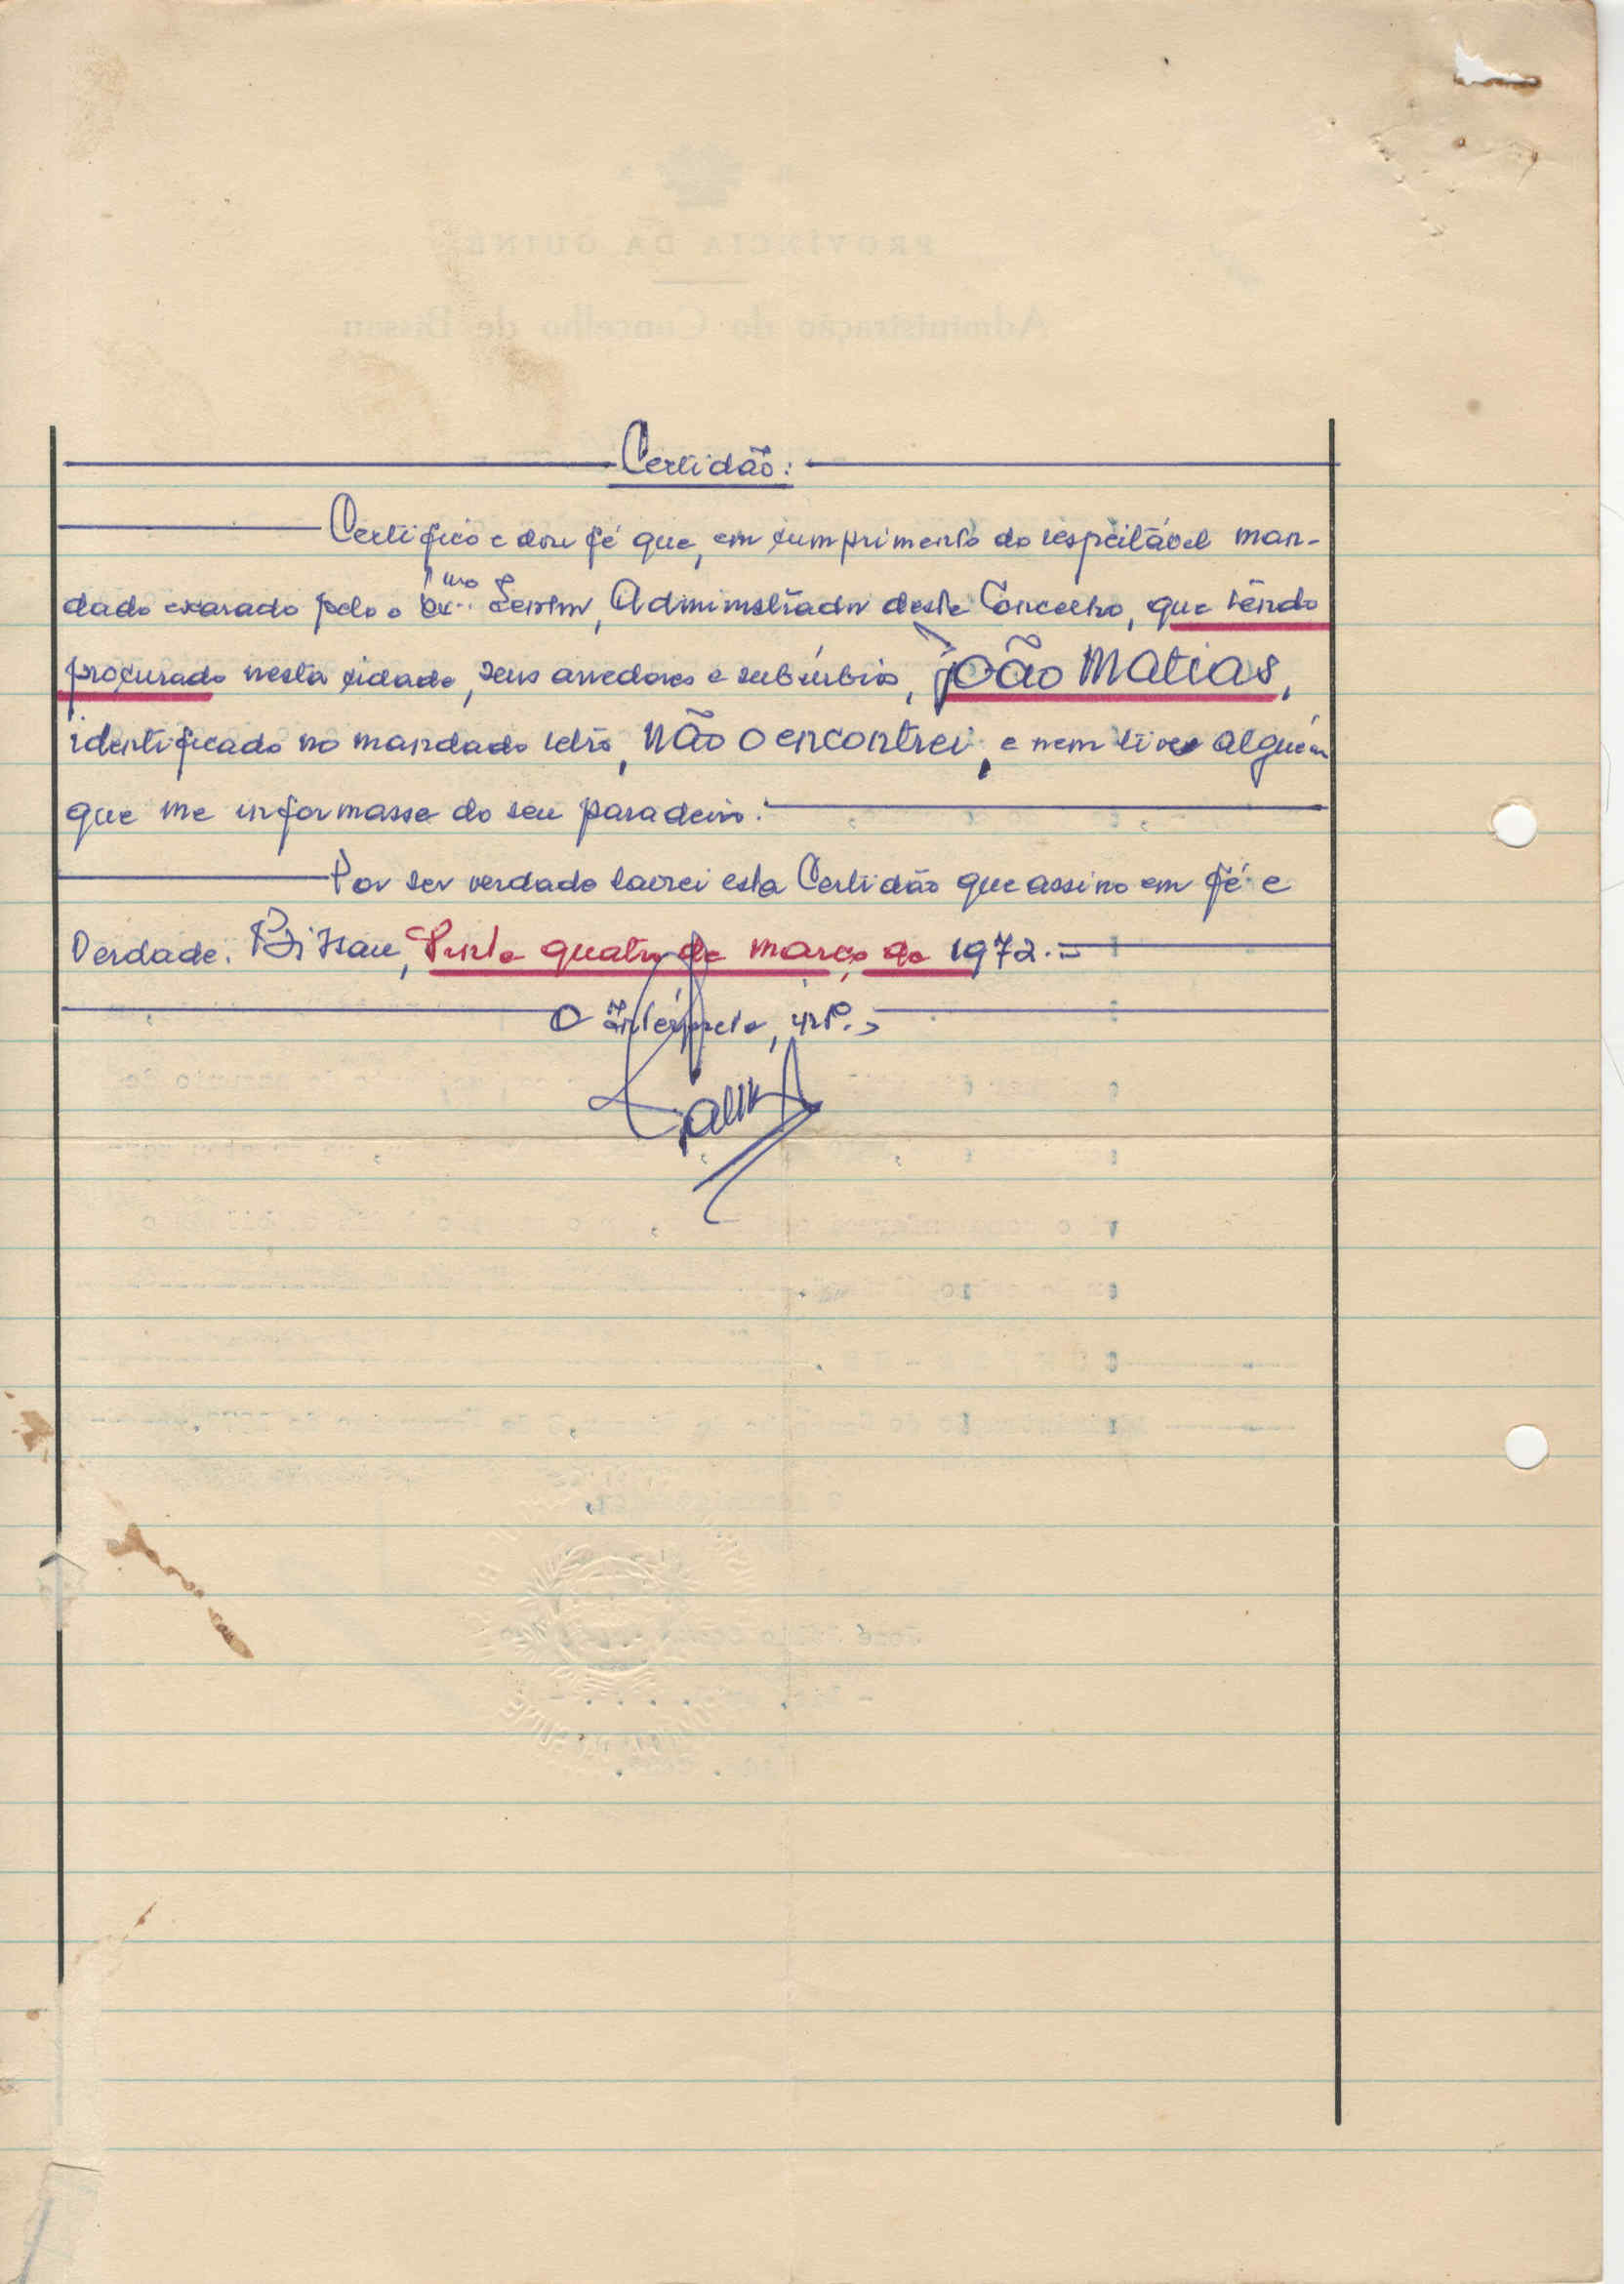 Certidão:
Certifico e dou fé que, em cumprimento do respeitável man-
dado exarado pelo o Ex.mo Senhor, Administrador deste Concelho, que sendo
procurado nesta cidade, seus arredores e subúrbios, João Matias,
identificado no mandado retro, não o encontrei, e nem tive alguém
que me informasse do seu paradeiro.
Por ser verdade lavrei esta Certidão que assino em fé e
Verdade. Bissau, quatro de março de 1972.=
O Intérprete, intº.,